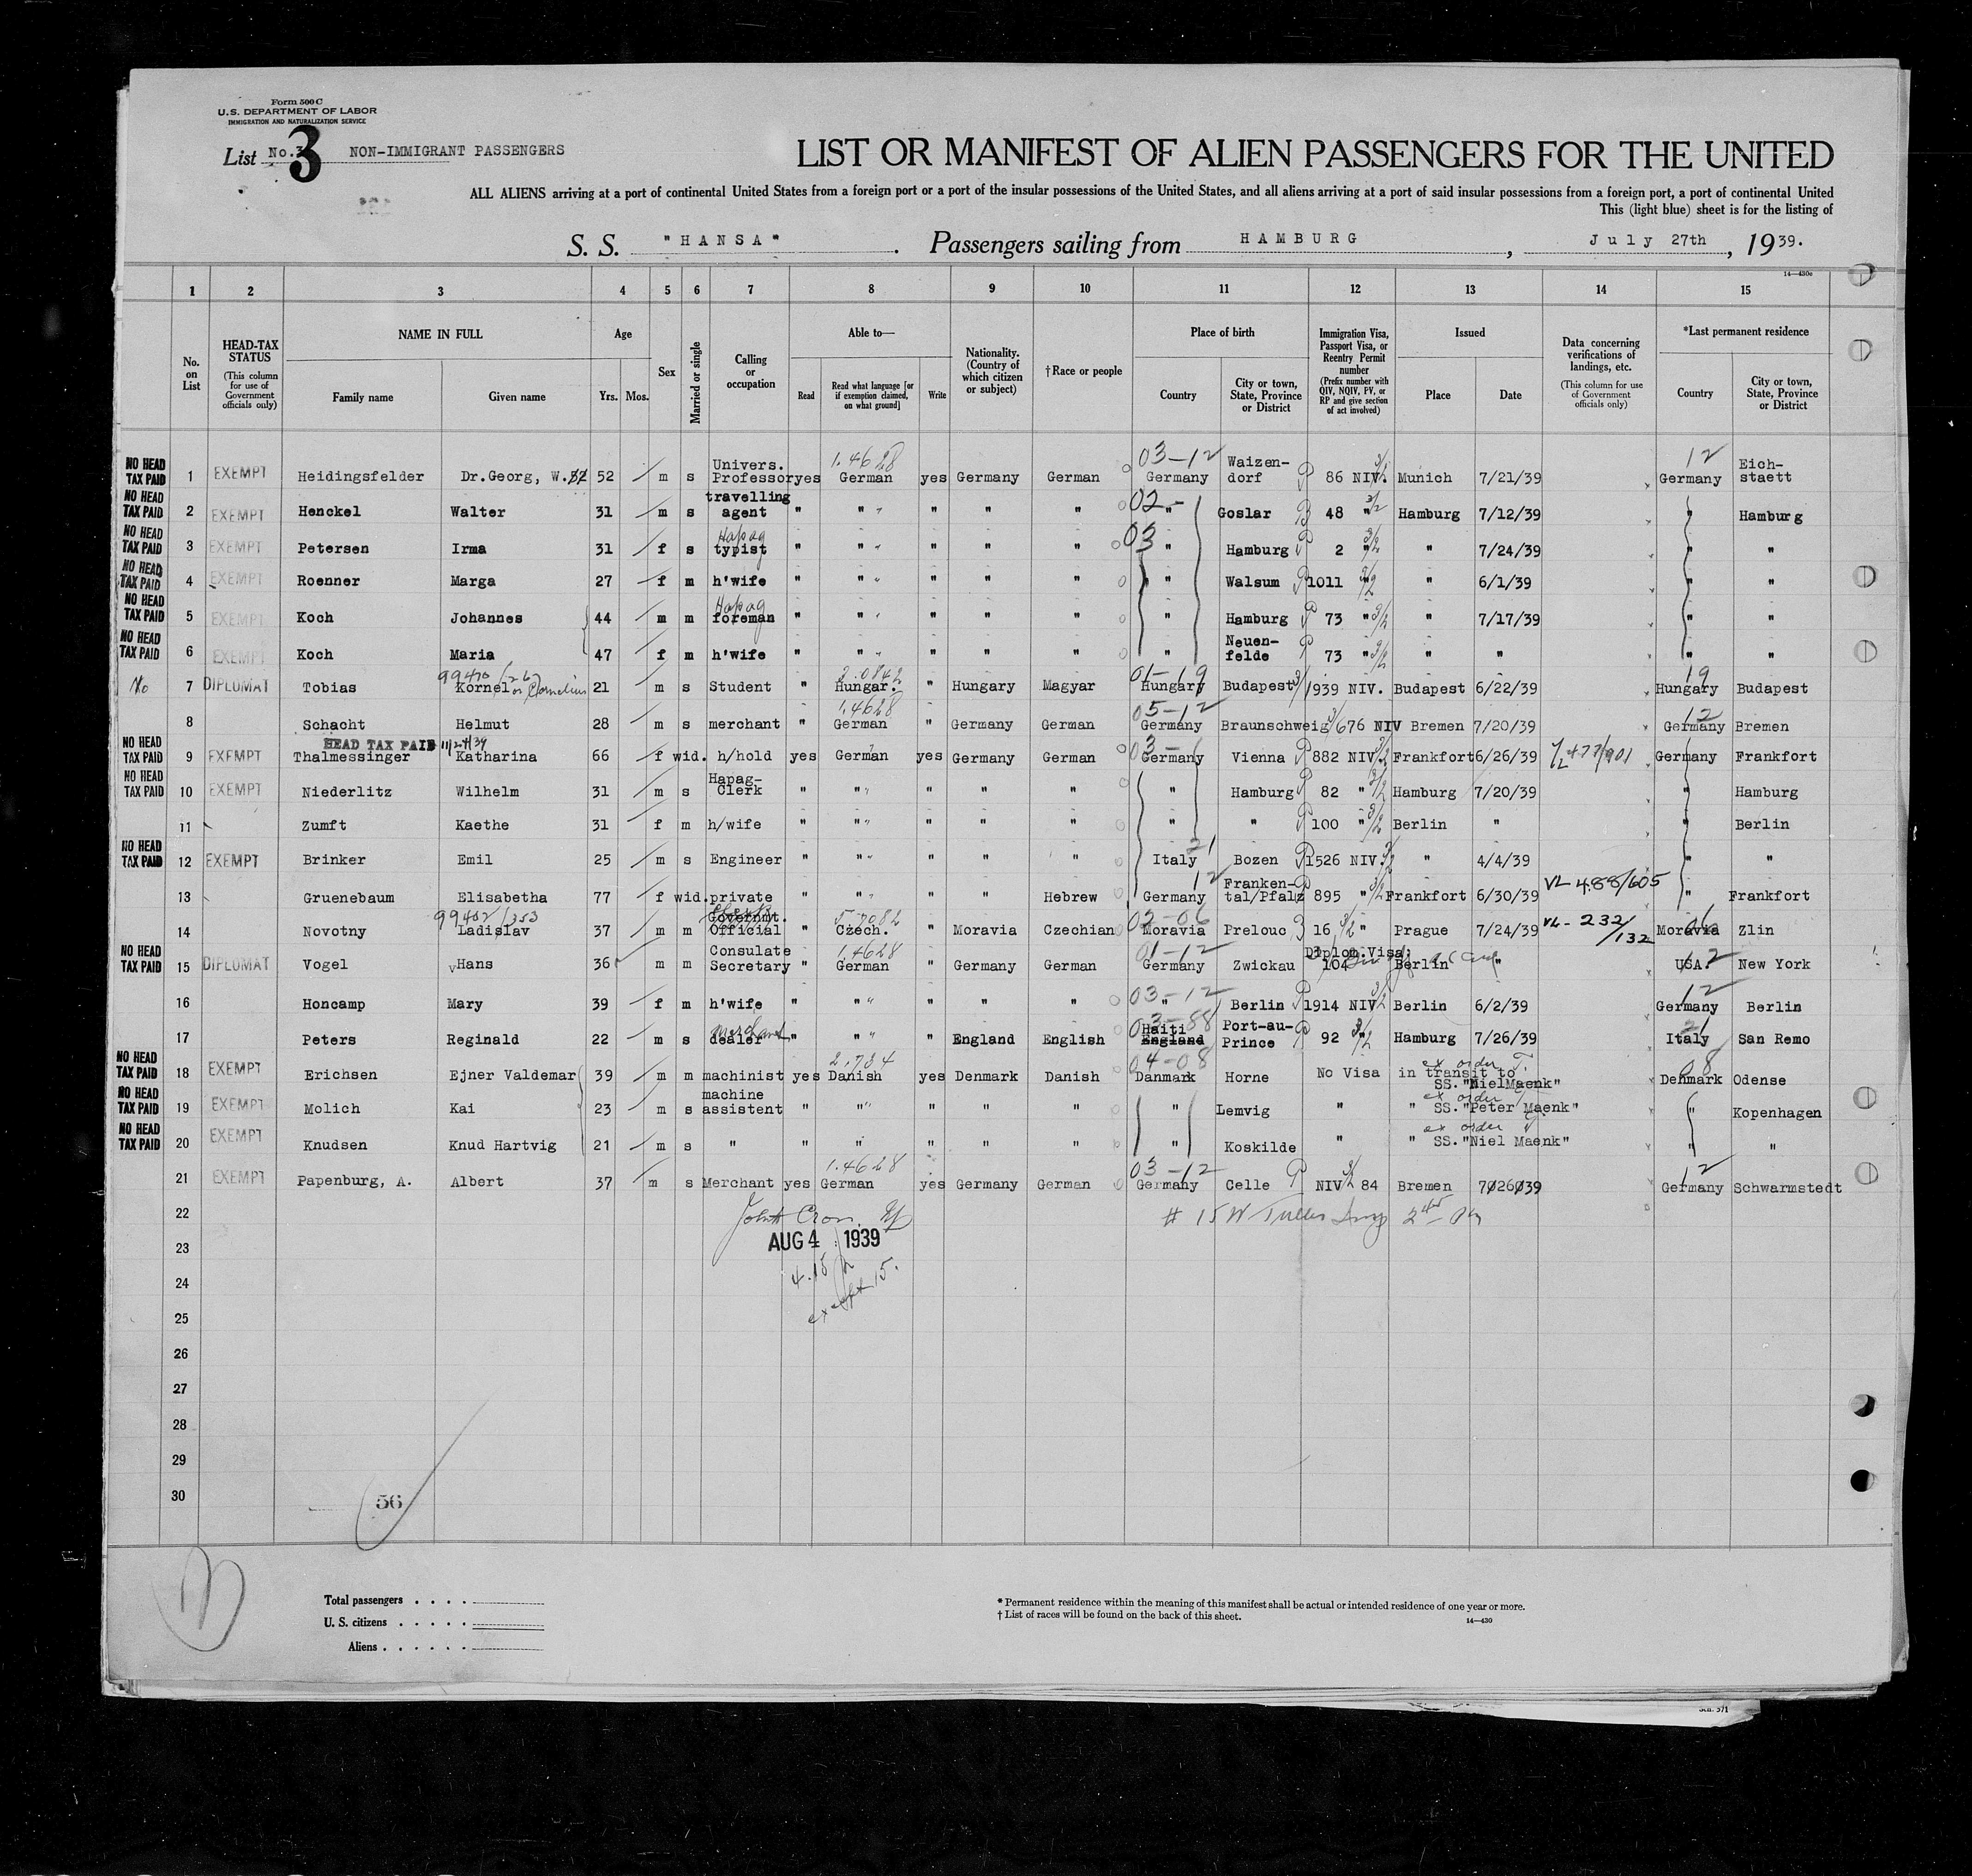 Form 500 C
U.S. DEPARTMENT OF LABOR
IMMIGRATION AND NATURALIZATION SERVICE
List No. 3 NON-IMMIGRANT PASSENGERS
LIST OR MANIFEST OF ALIEN PASSENGERS FOR THE UNITED
ALL ALIENS arriving at a port of continental United States from a foreign port or a port of the insular possessions of the United States, and all aliens arriving at a port of said insular possessions from a foreign port, a port of continental United
This (light blue) sheet is for the listing of
S. S. "HANSA". Passengers sailing from HAMBURG, July 27th, 1939.
14—430c
1 2 3 4 5 6 7 8 9 10 11 12 13 14 15
No. on List
HEAD-TAX STATUS (This column for use of Government officials only)
NAME IN FULL Family name Given name
Age Yrs. Mos.
Sex
Married or single
Calling or occupation
Able to— Read Read what language [or if exemption claimed, on what ground] Write
Nationality. (Country of which citizen or subject)
†Race or people
Place of birth Country City or town, State, Province or District
Immigration Visa, Passport Visa, or Reentry Permit number (Prefix number with QIV, NQIV, PV, or RP and give section of act involved)
Issued Place Date
Data concerning verifications of landings, etc. (This column for use of Government officials only)
*Last permanent residence Country City or town, State, Province or District
NO HEAD TAX PAID 1 EXEMPT Heidingsfelder Dr.Georg, W. 52 m s Univers. Professor yes 1.4628 German yes Germany German 03-12 Germany Waizen-dorf 86 NIV. Munich 7/21/39 12 Germany Eich-staett
NO HEAD TAX PAID 2 EXEMPT Henckel Walter 31 m s travelling agent " " " " " 02- " Goslar 48 " Hamburg 7/12/39 " Hamburg
NO HEAD TAX PAID 3 EXEMPT Petersen Irma 31 f s Hapag typist " " " " " 03 " Hamburg 2 " " 7/24/39 " "
NO HEAD TAX PAID 4 EXEMPT Roenner Marga 27 f m h'wife " " " " " " Walsum 1011 " " 6/1/39 " "
NO HEAD TAX PAID 5 EXEMPT Koch Johannes 44 m m Hapag foreman " " " " " " Hamburg 73 " " 7/17/39 " "
NO HEAD TAX PAID 6 EXEMPT Koch Maria 47 f m h'wife " " " " " " Neuen-felde 73 " " " " "
No 7 DIPLOMAT Tobias 99420/26 Kornel or Cornelius 21 m s Student " 2.0842 Hungar. " Hungary Magyar 01-19 Hungary Budapest 1939 NIV. Budapest 6/22/39 19 Hungary Budapest
8 Schacht Helmut 28 m s merchant " 1.4628 German " Germany German 05-12 Germany Braunschweig 676 NIV Bremen 7/20/39 12 Germany Bremen
HEAD TAX PAID 11/24/39
NO HEAD TAX PAID 9 EXEMPT Thalmessinger Katharina 66 f wid. h/hold yes German yes Germany German 03- Germany Vienna 882 NIV. Frankfort 6/26/39 Germany Frankfort
NO HEAD TAX PAID 10 EXEMPT Niederlitz Wilhelm 31 m s Hapag-Clerk " " " " " " Hamburg 82 " Hamburg 7/20/39 " Hamburg
11 Zumft Kaethe 31 f m h/wife " " " " " " " 100 " Berlin " " Berlin
NO HEAD TAX PAID 12 EXEMPT Brinker Emil 25 m s Engineer " " " " " 21 Italy Bozen 1526 NIV. " 4/4/39 " "
13 Gruenebaum Elisabetha 77 f wid. private " " " " Hebrew 12 Germany Franken-tal/Pfalz 895 " Frankfort 6/30/39 VL 488/605 " Frankfort
14 Novotny 99402/353 Ladislav 37 m m Governmt. Official " Czech. " Moravia Czechian 02-06 Moravia Prelouc 16 " Prague 7/24/39 VL-232/132 06 Moravia Zlin
NO HEAD TAX PAID 15 DIPLOMAT Vogel Hans 36 m m Consulate Secretary " 1.4628 German " Germany German 01-12 Germany Zwickau Diplom.Visa: 104 Berlin " USA. New York
16 Honcamp Mary 39 f m h'wife " " " " " 03-12 " Berlin 1914 NIV Berlin 6/2/39 12 Germany Berlin
17 Peters Reginald 22 m s merchant dealer " " " England English 03-88 Haiti England Port-au-Prince 92 " Hamburg 7/26/39 21 Italy San Remo
NO HEAD TAX PAID 18 EXEMPT Erichsen Ejner Valdemar 39 m m machinist yes 2.784 Danish yes Denmark Danish 04-08 Danmark Horne No Visa ex order in transit to SS. "NielMaenk" 08 Denmark Odense
NO HEAD TAX PAID 19 EXEMPT Molich Kai 23 m s machine assistent " " " " " " Lemvig " ex order " SS. "Peter Maenk" " Kopenhagen
NO HEAD TAX PAID 20 EXEMPT Knudsen Knud Hartvig 21 m s " " " " " " " Koskilde " ex order " SS. "Niel Maenk" " "
21 EXEMPT Papenburg, A. Albert 37 m s Merchant yes 1.4628 German yes Germany German 03-12 Germany Celle NIV 84 Bremen 7/26/39 12 Germany Schwarmstedt
22
23 AUG 4 1939
24 4.15
25 except 15.
26
27
28
29
30
56
Total passengers
U. S. citizens
Aliens
* Permanent residence within the meaning of this manifest shall be actual or intended residence of one year or more.
† List of races will be found on the back of this sheet.
14—430